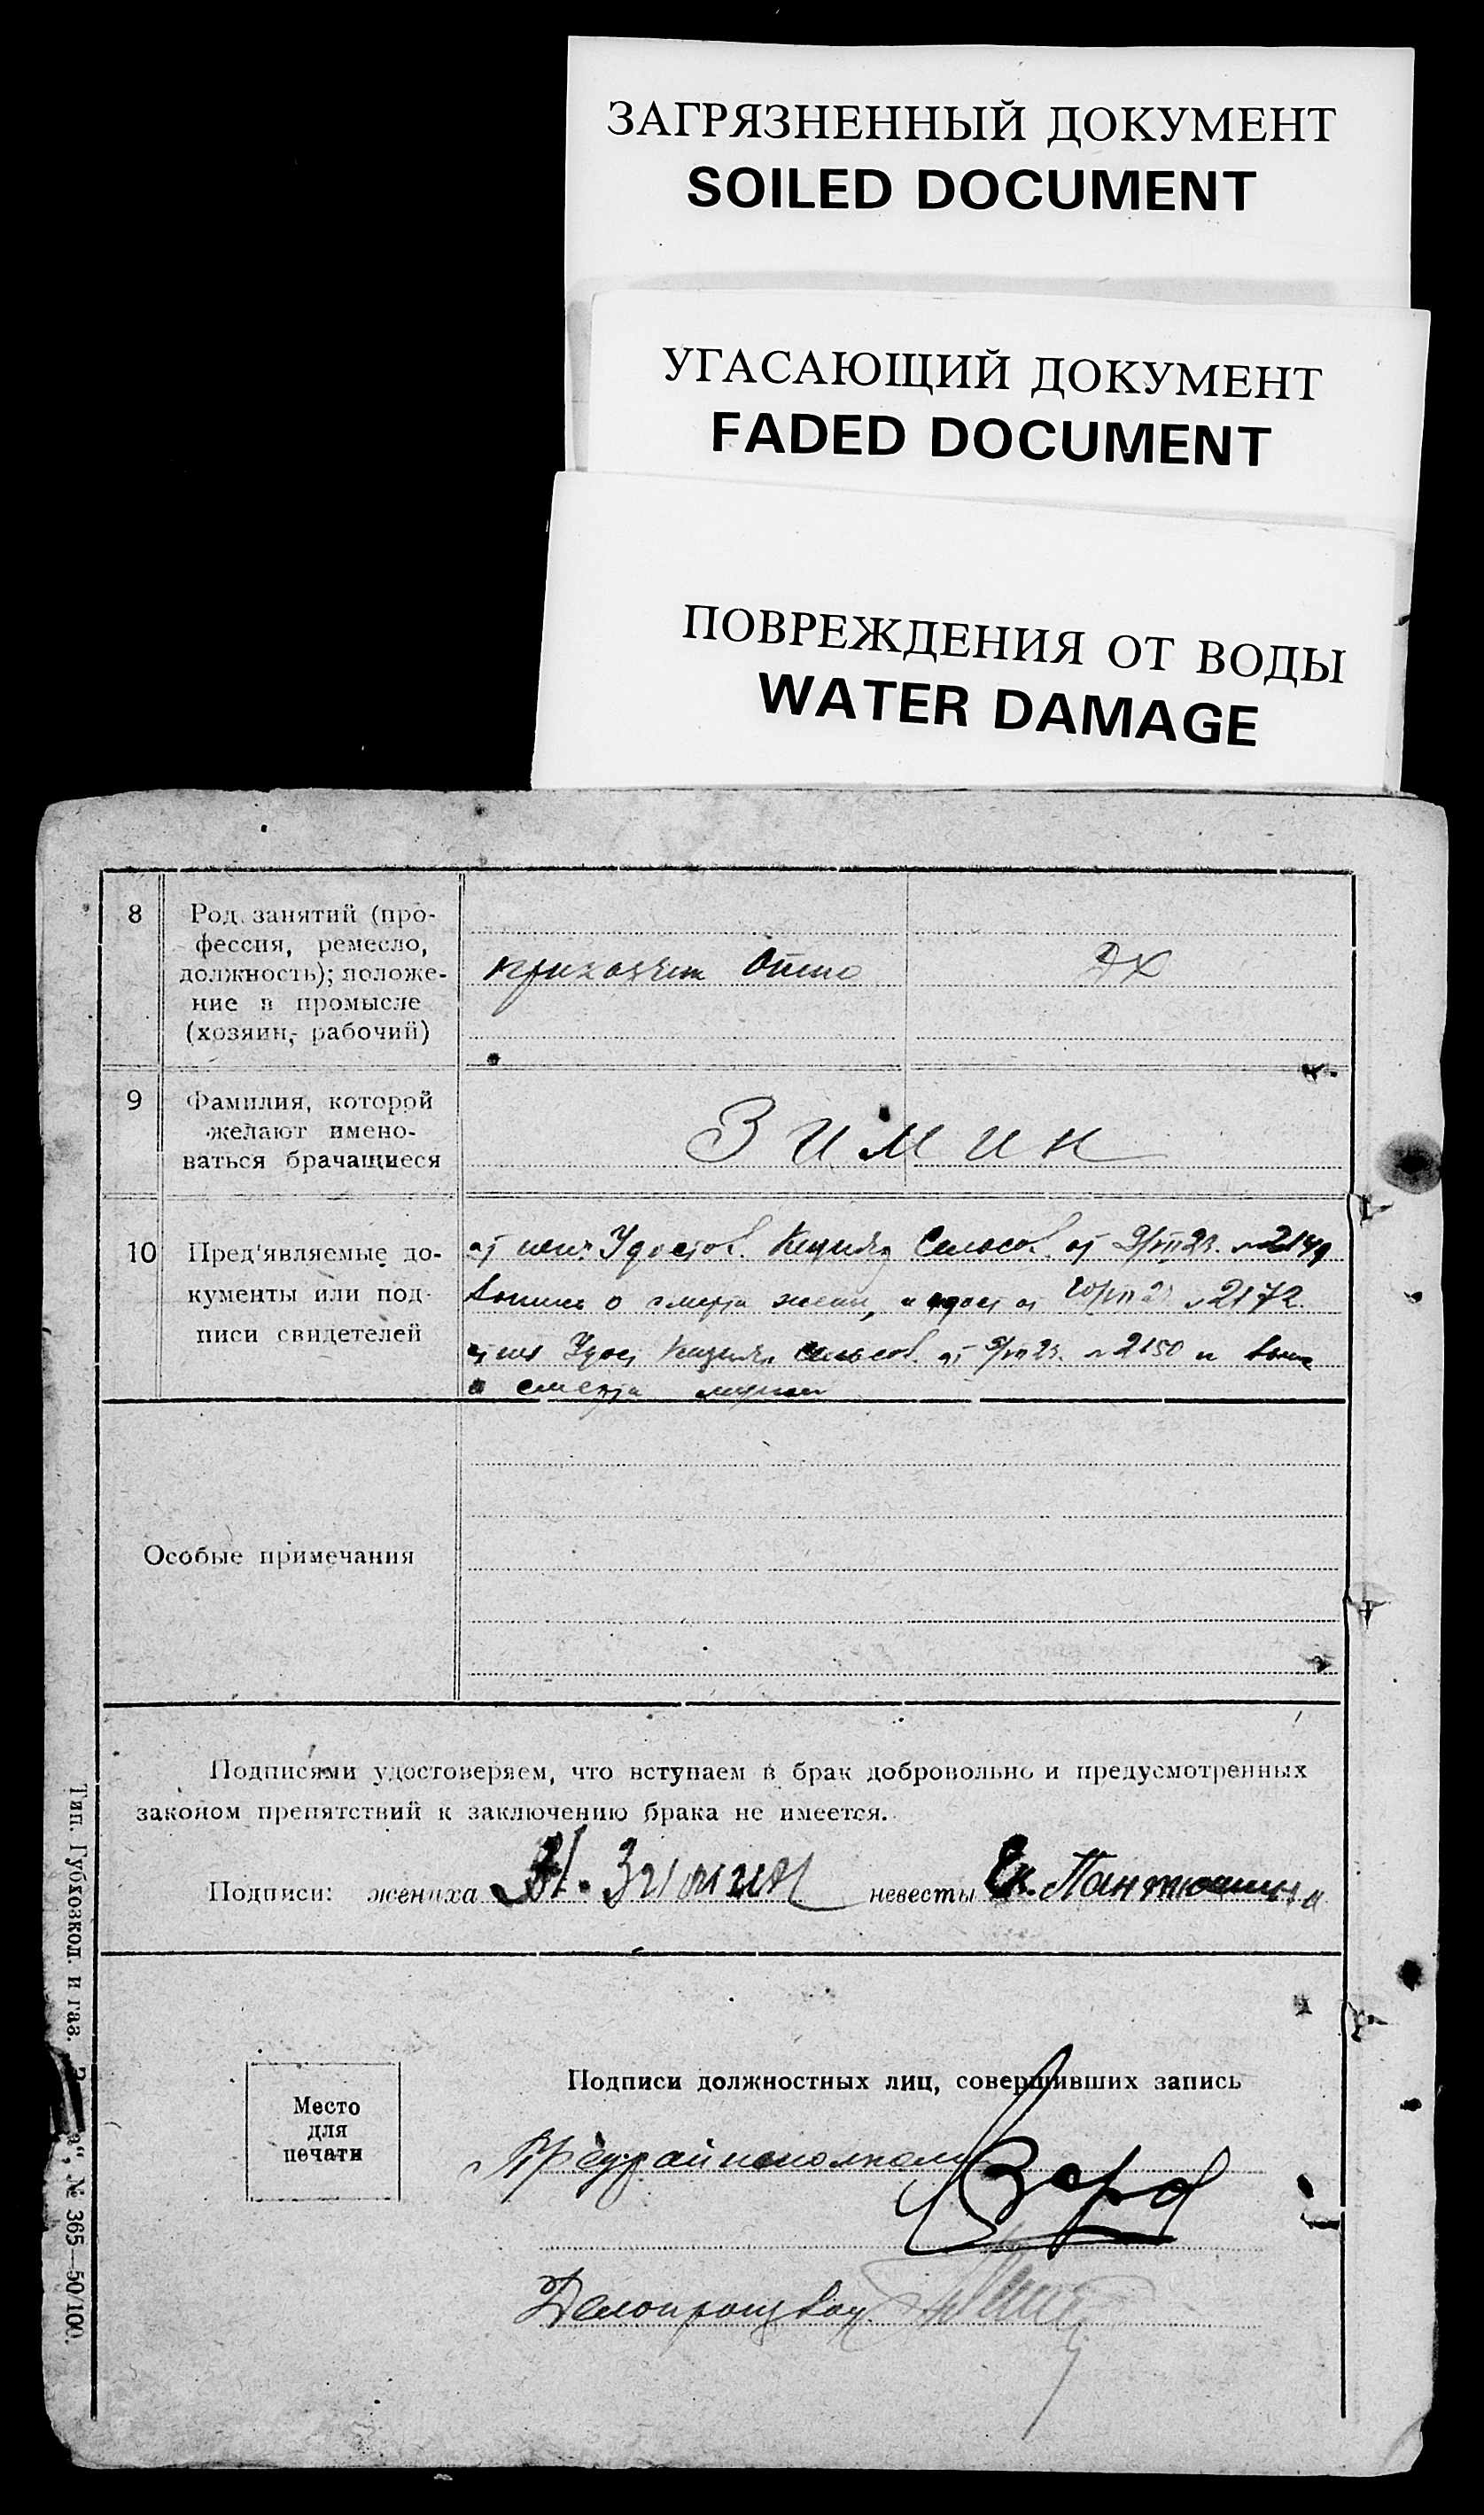 ЗАГРЯЗНЕННЫЙ ДОКУМЕНТ
SOILED DOCUMENT
УГАСАЮЩИЙ ДОКУМЕНТ
FADED DOCUMENT
ПОВРЕЖДЕНИЯ ОТ ВОДЫ
WATER DAMAGE
8
Род занятий (про-
фессия, ремесло,
должность); положе-
ние в промысле
(хозяин, рабочий)
ДХ
9
Фамилия, которой
желают имено-
ваться брачащиеся
Зимин
10
Пред'являемые до-
кументы или под-
писи свидетелей
от Удостов. Сельсов. от №2149
о смерти жены, и от №2172
Удос Сельсов. от №2150 и
о смерти
Особые примечания
Подписями удостоверяем, что вступаем в брак добровольно и предусмотренных
законом препятствий к заключению брака не имеется.
Подписи: жениха Зимин невесты Ек. Пантюшина
Подписи должностных лиц, совершивших запись
Место
для
печати
Предрайисполкома
Делопроизвод
Тип. Губхозкол. и газ. № 365—50/100.